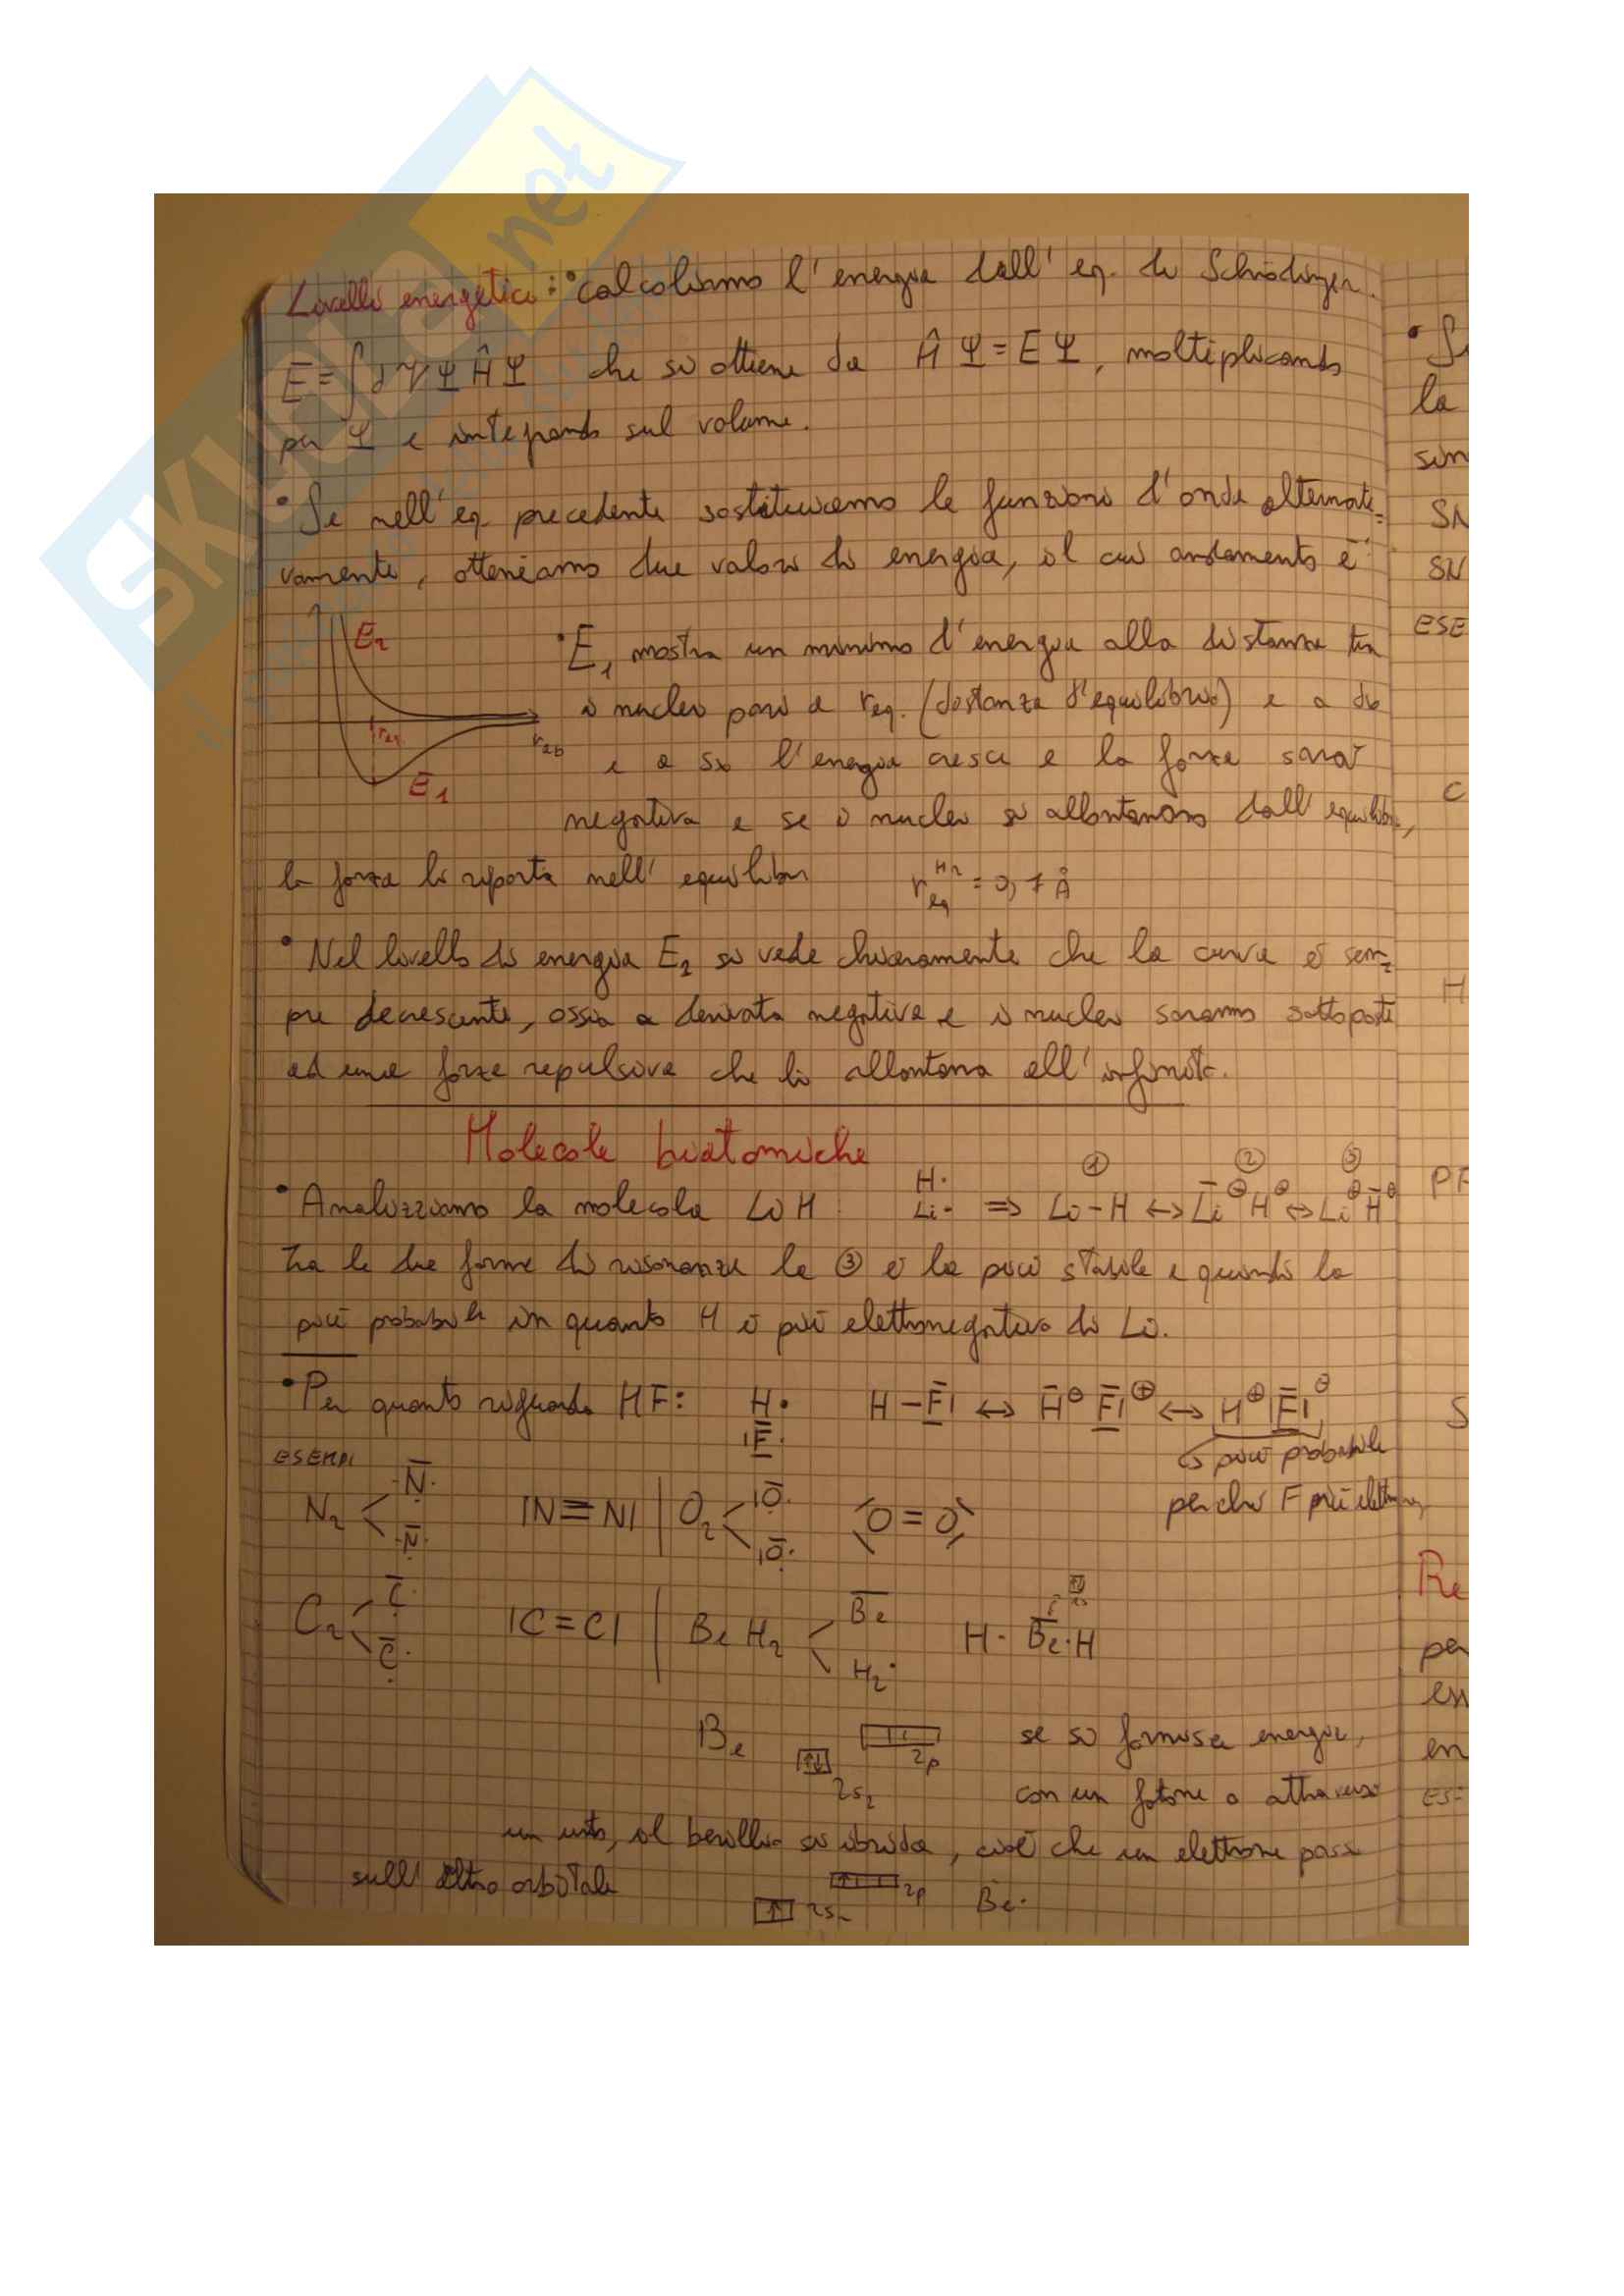 Livelli energetici: • calcoliamo l'energia dall'eq. di Schrödinger.
E = ∫ dV Ψ Ĥ Ψ che si ottiene da Ĥ Ψ = E Ψ, moltiplicando
per Ψ e integrando sul volume.
• Se nell'eq. precedente sostituiamo le funzioni d'onda alternati=
vamente, otteniamo due valori di energia, il cui andamento è
E₂
r eq
r ab
E₁
• E₁ mostra un minimo d'energia alla distanza tra
i nuclei pari a r eq. (distanza d'equilibrio) e a dx
e a sx l'energia cresce e la forza sarà
negativa e se i nuclei si allontanano dall'equilibrio,
la forza li riporta nell'equilibrio r eq H₂ = 0,7 Å
• Nel livello di energia E₂ si vede chiaramente che la curva è sem=
pre decrescente, ossia a derivata negativa e i nuclei saranno sottoposti
ad una forza repulsiva che li allontana all'infinito.
Molecole biatomiche
• Analizziamo la molecola LiH: H· Li· ⇒ ① Li-H ↔ ② Li⊖ H⊕ ↔ ③ Li⊕ H⊖
tra le due forme di risonanza la ③ è la più stabile e quindi la
più probabile in quanto H è più elettronegativo di Li.
• Per quanto riguarda HF: H· |F· H-F| ↔ H⊖ F|⊕ ↔ H⊕ |F|⊖
↳ più probabile
perché F più elettroneg
ESEMPI
N₂ < ·N· ·N· |N≡N| | O₂ < |O· |O· O=O
C₂ < C· C· |C=C| | BeH₂ < Be H₂· H· Be·H
Be ↑↓ 2s₂ 2p se si fornisce energia,
con un fotone o attraverso
un urto, il berillio si ibrida, cioè che un elettrone passa
sull'altro orbitale ↑ 2s ↑ 2p Be·
la
sim
SN
ESE
C
H
PR
S
Re
per
en
ES: